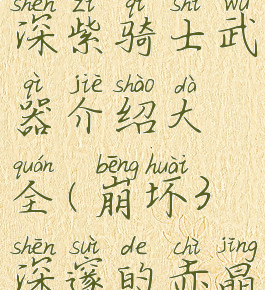 shēn zǐ qí shì wǔ
深紫骑士武
qì jiè shào dà
器介绍大
quán bēng huài
全(崩坏3
shēn suì de chì jīng
深邃的赤晶